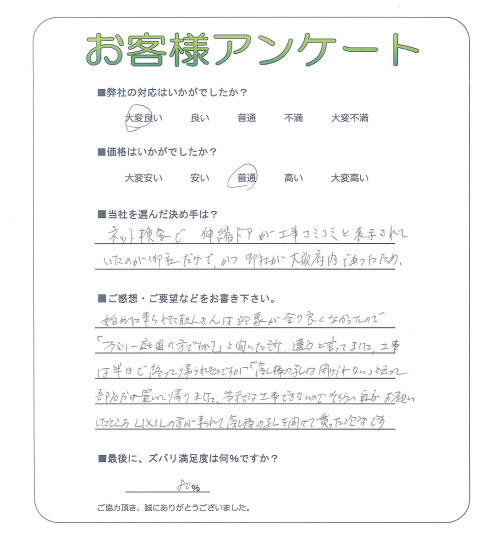 お客様アンケート
■弊社の対応はいかがでしたか？
大変良い 良い 普通 不満 大変不満
■価格はいかがでしたか？
大変安い 安い 普通 高い 大変高い
■当社を選んだ決め手は？
ネット検索で 伸縮ドアが工事コミコミと表示されて
いたのが御社だけで、かつ 御社が大阪府内であったため。
■ご感想・ご要望などをお書き下さい。
始めに来られた職人さんは印象が余り良くなかったので
「ファミリー庭園の方ですか？」と聞いた所、違うと言ってました、工事
は半日で終って帰られたのですが「落し棒の孔は開けれない」と言って
部品だけ置いて帰りました、当方では工事できないので そちらへ再度お願い
したところ LIXILの方が来られて落し棒の孔を開けて貰った次第です
■最後に、ズバリ満足度は何%ですか？
80%
ご協力頂き、誠にありがとうございました。